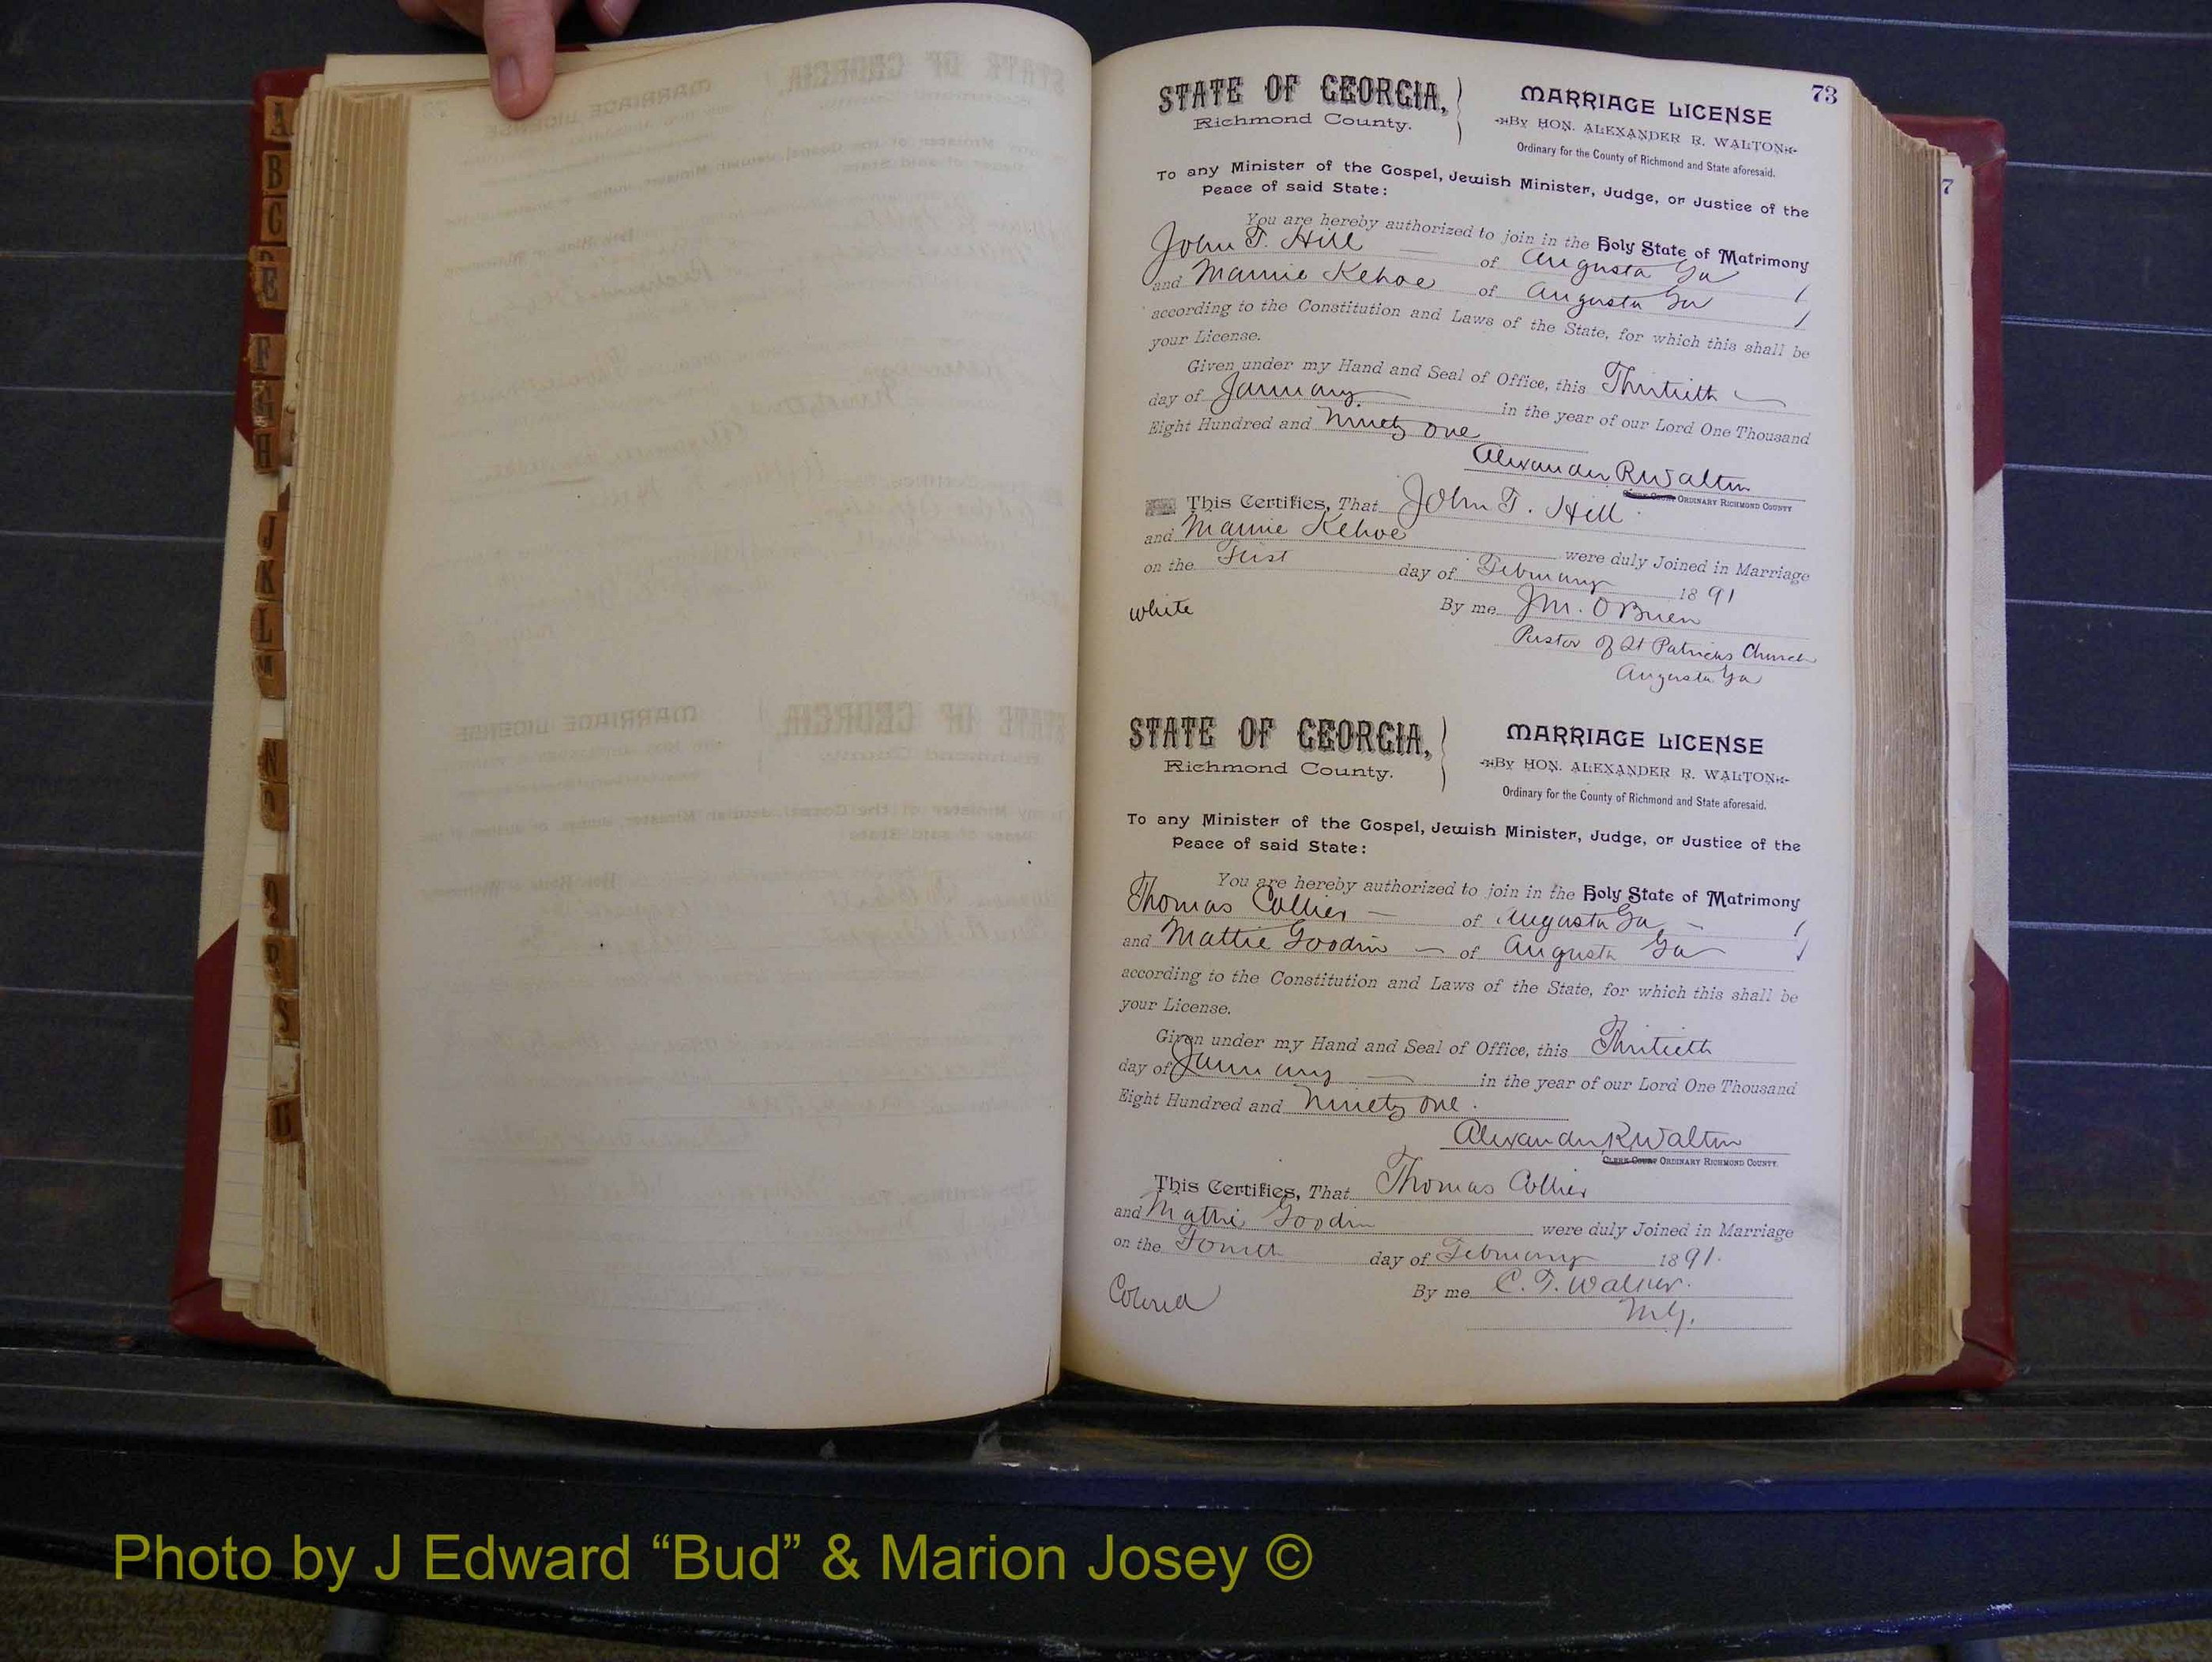 A
B
C
E
F
G
H
J
K
L
M
N
O
R
S
U
73
7
STATE OF GEORGIA,
Richmond County.
MARRIAGE LICENSE
By HON. ALEXANDER R. WALTON
Ordinary for the County of Richmond and State aforesaid.
To any Minister of the Gospel, Jewish Minister, Judge, or Justice of the
Peace of said State:
You are hereby authorized to join in the Holy State of Matrimony
John T. Hill of Augusta Ga
and Mamie Kehoe of Augusta Ga
according to the Constitution and Laws of the State, for which this shall be
your License.
Given under my Hand and Seal of Office, this Thirtieth
day of January in the year of our Lord One Thousand
Eight Hundred and Ninety One
Alexander R Walton
Clerk Court ORDINARY RICHMOND COUNTY
This Certifies, That John T. Hill
and Mamie Kehoe were duly Joined in Marriage
on the First day of February 1891
white By me J M. O Brien
Pastor of St Patricks Church
Augusta Ga
STATE OF GEORGIA,
Richmond County.
MARRIAGE LICENSE
By HON. ALEXANDER R. WALTON
Ordinary for the County of Richmond and State aforesaid.
To any Minister of the Gospel, Jewish Minister, Judge, or Justice of the
Peace of said State:
You are hereby authorized to join in the Holy State of Matrimony
Thomas Collier — of Augusta Ga —
and Mattie Goodin — of Augusta Ga
according to the Constitution and Laws of the State, for which this shall be
your License.
Given under my Hand and Seal of Office, this Thirtieth
day of January — in the year of our Lord One Thousand
Eight Hundred and Ninety One.
Alexander R Walton
CLERK COURT ORDINARY RICHMOND COUNTY.
This Certifies, That Thomas Collier
and Mattie Goodin were duly Joined in Marriage
on the Fourth day of February 1891.
Colored By me C. T. Walker.
M.G.
Photo by J Edward “Bud” & Marion Josey ©